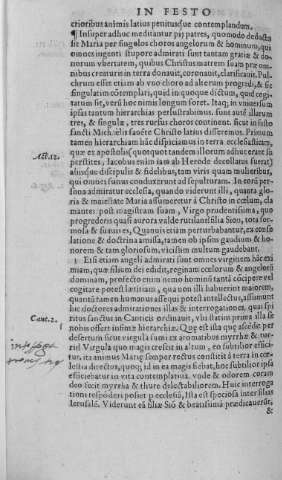 IN FESTO
crioribus animis latius penitusque contemplandum.
¶ Insuper adhuc meditantur pij patres, quomodo deducta
sit Maria per singulos choros angelorum & hominum, qui
omnes ingenti stupore admirati sunt tantam gratiæ & do-
norum vbertatem, quibus Christus matrem suam præ om-
nibus creaturis in terra donauit, coronauit, clarificauit. Pul-
chrum esset etiam ab vno choro ad alterum progredi, & sic
singulatim contemplari, quid in quoque dictum, quid cogi-
tatum sit, verū hoc nimis longum foret. Itaq; in vniuersum
ipsas tantum hierarchias perstrabimus. sunt autē illarum
tres, & singulæ, tres rursus choros continent. sicut in festo
sancti Michaëlis sanctæ Christo latius disseremus. Primum
tamen hierarchiam hic dispiciamus in terra ecclesiasticam,
quæ ex apostolis (quotquot tandem illorum adhuc erant su
perstites, Iacobus enim iam ab Herode decollatus fuerat)
aliisque discipulis & fidelibus, tam viris quam mulieribus,
qui omnes funus conduxerunt ad sepulturam. In eorū per-
sona admiratur ecclesia, quando viderunt illi, quanta glo-
ria & maiestate Maria assumeretur à Christo in cœlum, cla
mantes post magistram suam, Virgo prudentissima, quo
progrederis quasi aurora valde rutilans? filia Sion, tota for-
mosa & suauis es, Quanuis etiam perturbabantur, ex conso
latione & doctrina amissa, tamen ob ipsius gaudium & ho-
norem & tam gloriosum, vicissim multum gaudebant.
Etsi etiam angeli admirati sunt omnes virginem hāc exi
miam, quæ filium dei edidit, reginam cœlorum & angelorū
dominam, profecto enim nemo hominū tantā cōcipere vel
cogitare potest lætitiam, quin non illi habuerint maiorem,
quantū tamen humanus assequi potest intellectus, assumunt
hic doctores admirationes illas & interrogationes, quas spi
ritus sanctus in Canticis ordinauit, vbi statim prima illa se
nobis offert infimæ hierarchiæ. Que est ista quæ ascēdit per
desertum sicut virgula fumi ex aromatibus myrrhæ & thu-
ris? Virgula quo magis crescit in altum, eo subtilior effici-
tur, ita animus Mariæ semper rectus constitit à terra in cœ-
lestia directus, quoq; id in ea magis fiebat, hoc subtilior ipsa
efficiebatur in vita contemplatiua, vnde & odorem coram
deo fecit myrrha & thure delectabiliorem. Huic interroga
tioni respōdere potest p ecclesiā, Ista est speciosa inter filias
Ierusalē. Viderunt eā filiæ Siō & beatissimā prædicauerūt,
&
Act.12.
Cant.3.